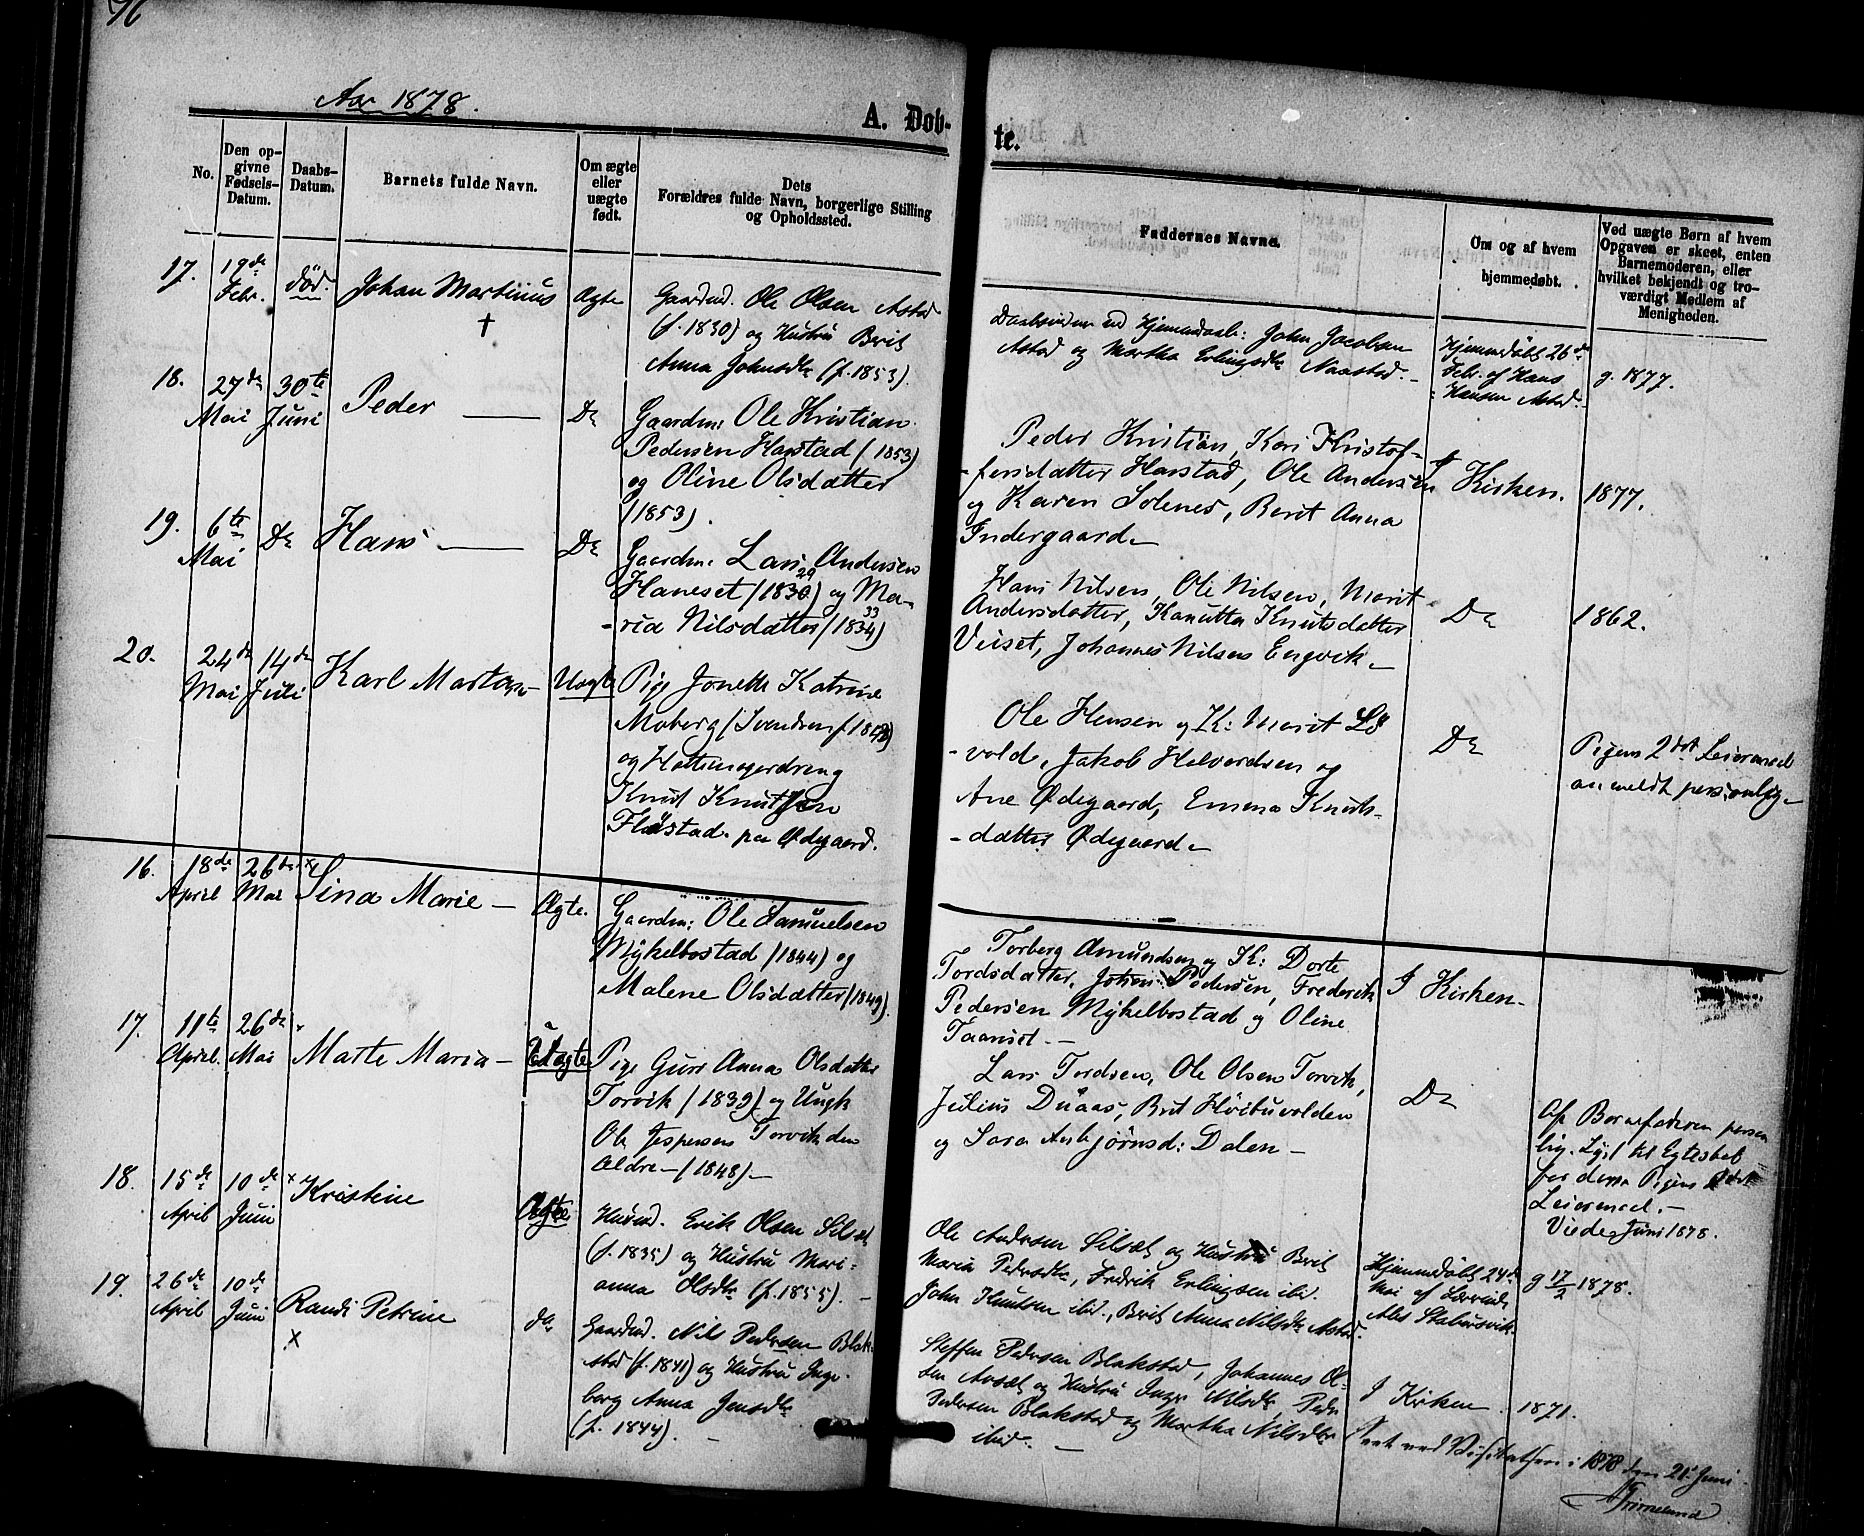 96
Aar 1878.
A. Døb-
te.
No.
Den op-
givne
Fødsels-
Datum.
Daabs-
Datum.
Barnets fulde Navn.
Om ægte
eller
uægte
født.
Dets
Forældres fulde Navn, borgerlige Stilling
og Opholdssted.
Faddernes Navne.
Om og af hvem
hjemmedøbt.
Ved uægte Børn af hvem
Opgaven er skeet, enten
Barnemoderen, eller
hvilket bekjendt og tro-
værdigt Medlem af
Menigheden.
17.
19de
Febr.
död.
Johan Martinus
†
Ægte
Gaardmd. Ole Olsen Astad
(f. 1830) og Hustru Berit
Anna Johnsdtr (f. 1853).
ved Hjemmedaab: John Jacobsen
Astad og Martha Erlingsdtr Naastad. -
Hjemmedøbt 26de
Febr. af Hans
Hansen Astad. -
g. 1877.
18.
27de
Mai
30te
Juni
Peder
Do
Gaardm: Ole Kristian
Pedersen Harstad (1853)
og Oline Olsdatter
(1853).
Peder Kristian, Kari Kristof-
-fersdatter Harstad, Ole Andersen
og Karen Solenes, Berit Anna
Indergaard -
I Kirken.
1877.
19.
6te
Mai
Do
Hans
Do
Gaardm: Lars Andersen
Haneset (1830) 29 og Ma-
-ria Nilsdatter (1834) 33
Hans Nilsen, Ole Nilsen, Marit
Andersdatter, Kanutta Knutsdatter
Veiset, Johannes Nilsen Engvik -
Do
1862.
20.
24de
Mai
14de
Juli
Karl Martin -
Uægte
Pige Jonette Katrine
Moberg (Svendsen f. 1848)
og
Knut Knutsen
Flastad paa Ødegaard.
Ole Hansen og K: Marit Lø
-vold, Jakob Halvordsen og
Ane Ødegaard, Emma Knuts-
-datter Ødegaard -
Do
Pigens 2det Leiermaal
anmeldt personlig -
16.
18de
April
26de
Mai
x
Sina Marie -
Ægte.
Gaardm: Ole Samuelsen
Mykelbostad (1844) og
Malene Olsdatter (1849).
Torberg Amundsen og K: Dorte
Tordsdatter, Johan Pedersen, Frederik
Pedersen Mykelbostad og Oline
I Kirken -
17.
11te
April.
26de
Mai
x
Marte Maria -
Uægte
Pige Guri Anna Olsdatter
Torvik (1839) og Ungk
Ole Jespersen Torvik den
Ældre - (1848) -
Lars Tordsen, Ole Olsen Torvik,
Julius Duaas, Brit Høibuvolden
og Sara Asbjørnsd: Dalen -
Do
Af Barnefaderen person
lig. Lyst til Egteskab
før denne Pigens
Leiermaal. -
Viede Juni 1878.
18.
15de
April
10de
Juni
x
Kristine
Ægte
Husmd. Erik Olsen Silsæt
(f. 1835) og Hustru Mari-
anna Olsdtr (f. 1855). -
Ole Andersen Silsæt og Hustru Berit
Maria Pedersdtr, Fredrik Erlingsen ibid.
John Knutsen ibid., Berit Anna Nilsdtr Astad.
Hjemmedøbt 24de
Mai af Lærerinde
g 17/2 1878.
19.
26de
April
10de
Juni
Randi Petrine
x
do
Gaardmd. Nils Pedersen Blak-
stad (f. 1841) og Hustru Inge-
borg Anna Jensdtr
(f. 1844). -
Steffen Pedersen Blakstad, Johannes Ol-
sen Avsæt og Hustru Inger Nilsdtr, Peder
Pedersen Blakstad og Martha Nilsdtr
ibid. -
I Kirken.
1871.
Seet ved Visitatsen i 1878 den 21. Juni